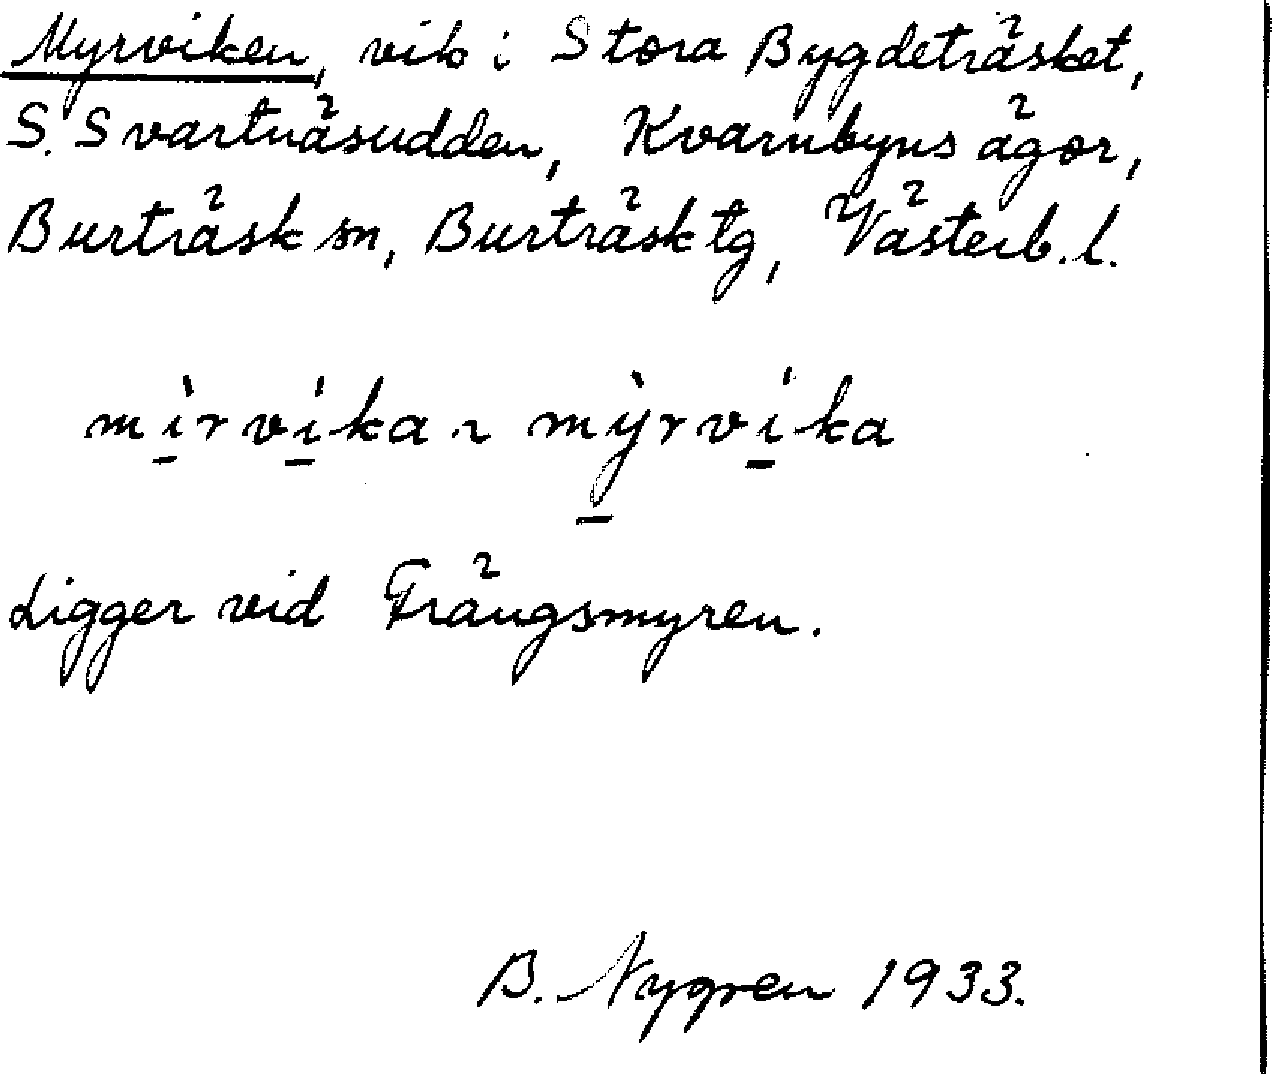 Myrviken, vik i Stora Bygdeträsket,
S. Svartnäsudden, Kvarnbyns ägor,
Burträsk sn, Burträsk tg, Västerb. l.
mì̱rví̱ka ~ mỳ̱rví̱ka
Ligger vid Trängsmyren.
B. Nygren 1933.